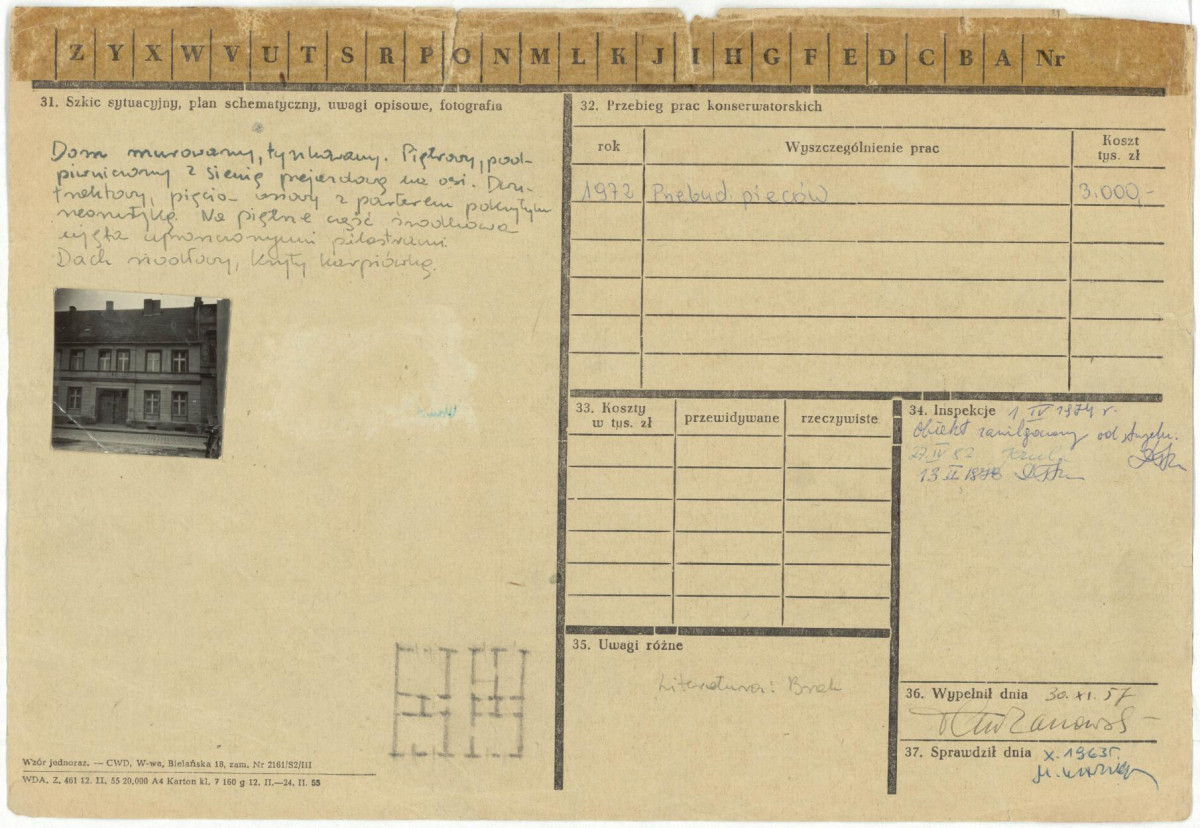 Z Y X W V U T S R P O N M L K J I H G F E D C B A Nr
31. Szkic sytuacyjny, plan schematyczny, uwagi opisowe, fotografia
Dom murowany, tynkowany. Piętrowy, pod-
piwniczony z sienią przejazdową na osi. Dwu-
traktowy, pięcio osiowy z parterem pokrytym
boniatką. Na piętrze część środkowa
ujęta uproszczonymi pilastrami.
Dach siodłowy, kryty karpiówką.
Wzór jednoraz. — CWD, W-wa, Bielańska 18, zam. Nr 2161/S2/III
WDA. Z. 461 12. II. 55 20,000 A4 Karton kl. 7 160 g 12. II.—24. II. 55
32. Przebieg prac konserwatorskich
rok Wyszczególnienie prac Koszt
tys. zł
1972 Przebud. pieców 3.000,-
33. Koszty
w tys. zł przewidywane rzeczywiste
34. Inspekcje 1 IV 1974 r.
Obiekt zawilgocony od
27 IV 82
13 II 1978
35. Uwagi różne
Literatura: Brak
36. Wypełnił dnia 30. XI. 57
37. Sprawdził dnia X. 1963 r.